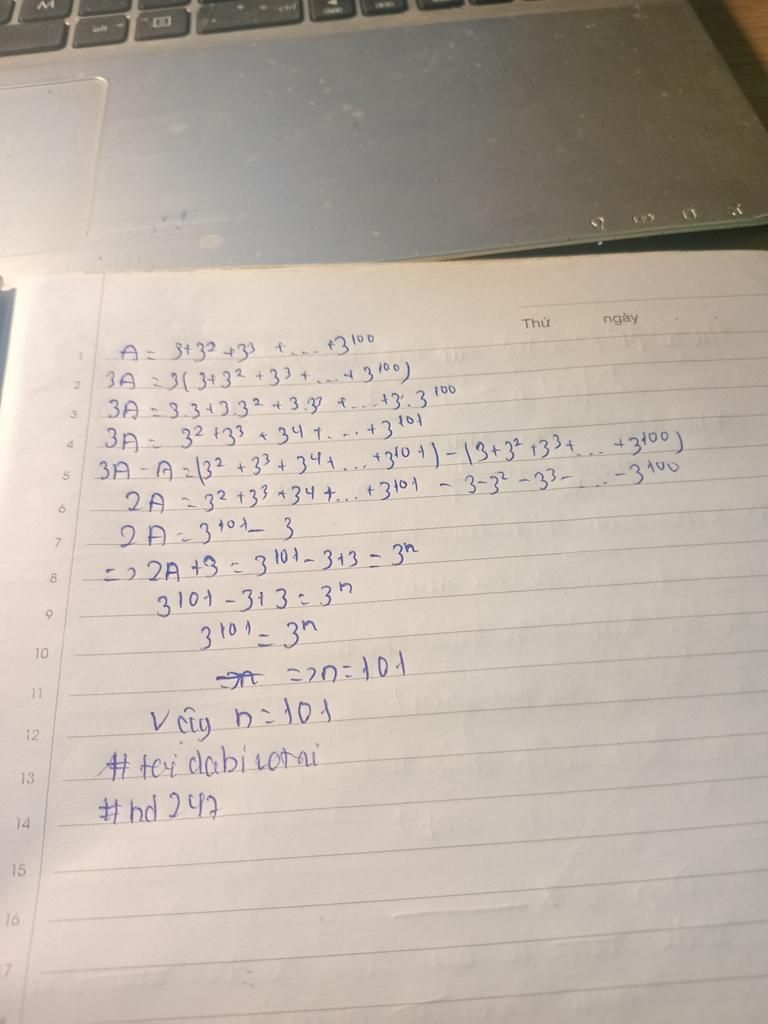 Thứ ngày
1 A = 3+3² +3³ + ... +3¹⁰⁰
2 3A = 3(3+3² +3³ + ... + 3¹⁰⁰)
3 3A = 3.3+3.3² +3.3³ + ... +3.3¹⁰⁰
4 3A = 3² +3³ + 3⁴ + ... + 3¹⁰¹
5 3A - A = (3² +3³ + 3⁴ + ... +3¹⁰¹) - (3+3² +3³ + ... +3¹⁰⁰)
6 2A = 3² +3³ +3⁴ + ... +3¹⁰¹ - 3-3² -3³ - ... -3¹⁰⁰
7 2A = 3¹⁰¹ - 3
8 => 2A +3 = 3¹⁰¹ - 3+3 = 3ⁿ
9 3¹⁰¹ - 3+ 3 = 3ⁿ
10 3¹⁰¹ = 3ⁿ
11 => n = 101
12 Vậy n = 101
13 #
14 #hd247
15
16
7